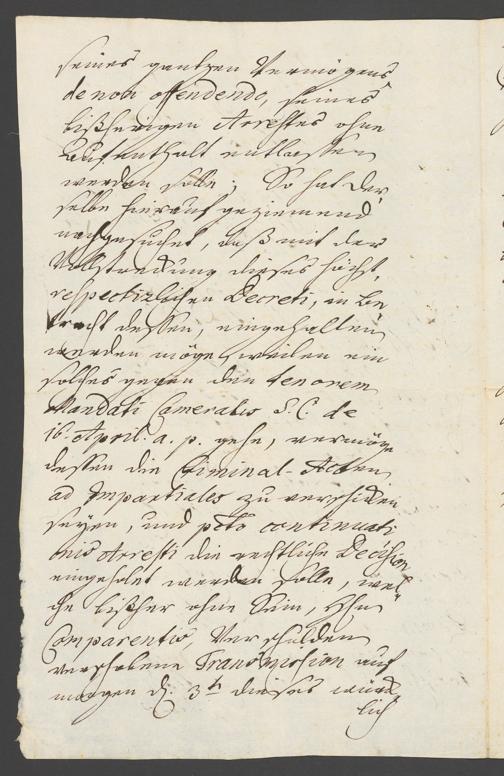 seines gantzen Vermögens
de non offendendo, seines
bißherigen Arrestes ohne
Aufenthalt entlassen
werden solle; So hat der
selbe hierauf geziemend
nachgesuchet, daß mit der
Vollstreckung dieses höchst,
respectirlichen Decreti, in be
tracht dessen, eingehalten
werden möge, weilen ein
solches gegen den tenorem
Mandati Cameralis S. C. de
16. April. a. p. gehe, vermöge
dessen die Criminal-Acten
ad Impartiales zu verschicken
seyen, und pcto continuati
onis Arresti die rechtliche Decision
eingeholet werden solle, wel
che bißher ohne Sein, Hhn
Comparentis, Verschulden
verschobene Transmission auf
morgen d. 3t dieses würck
lich